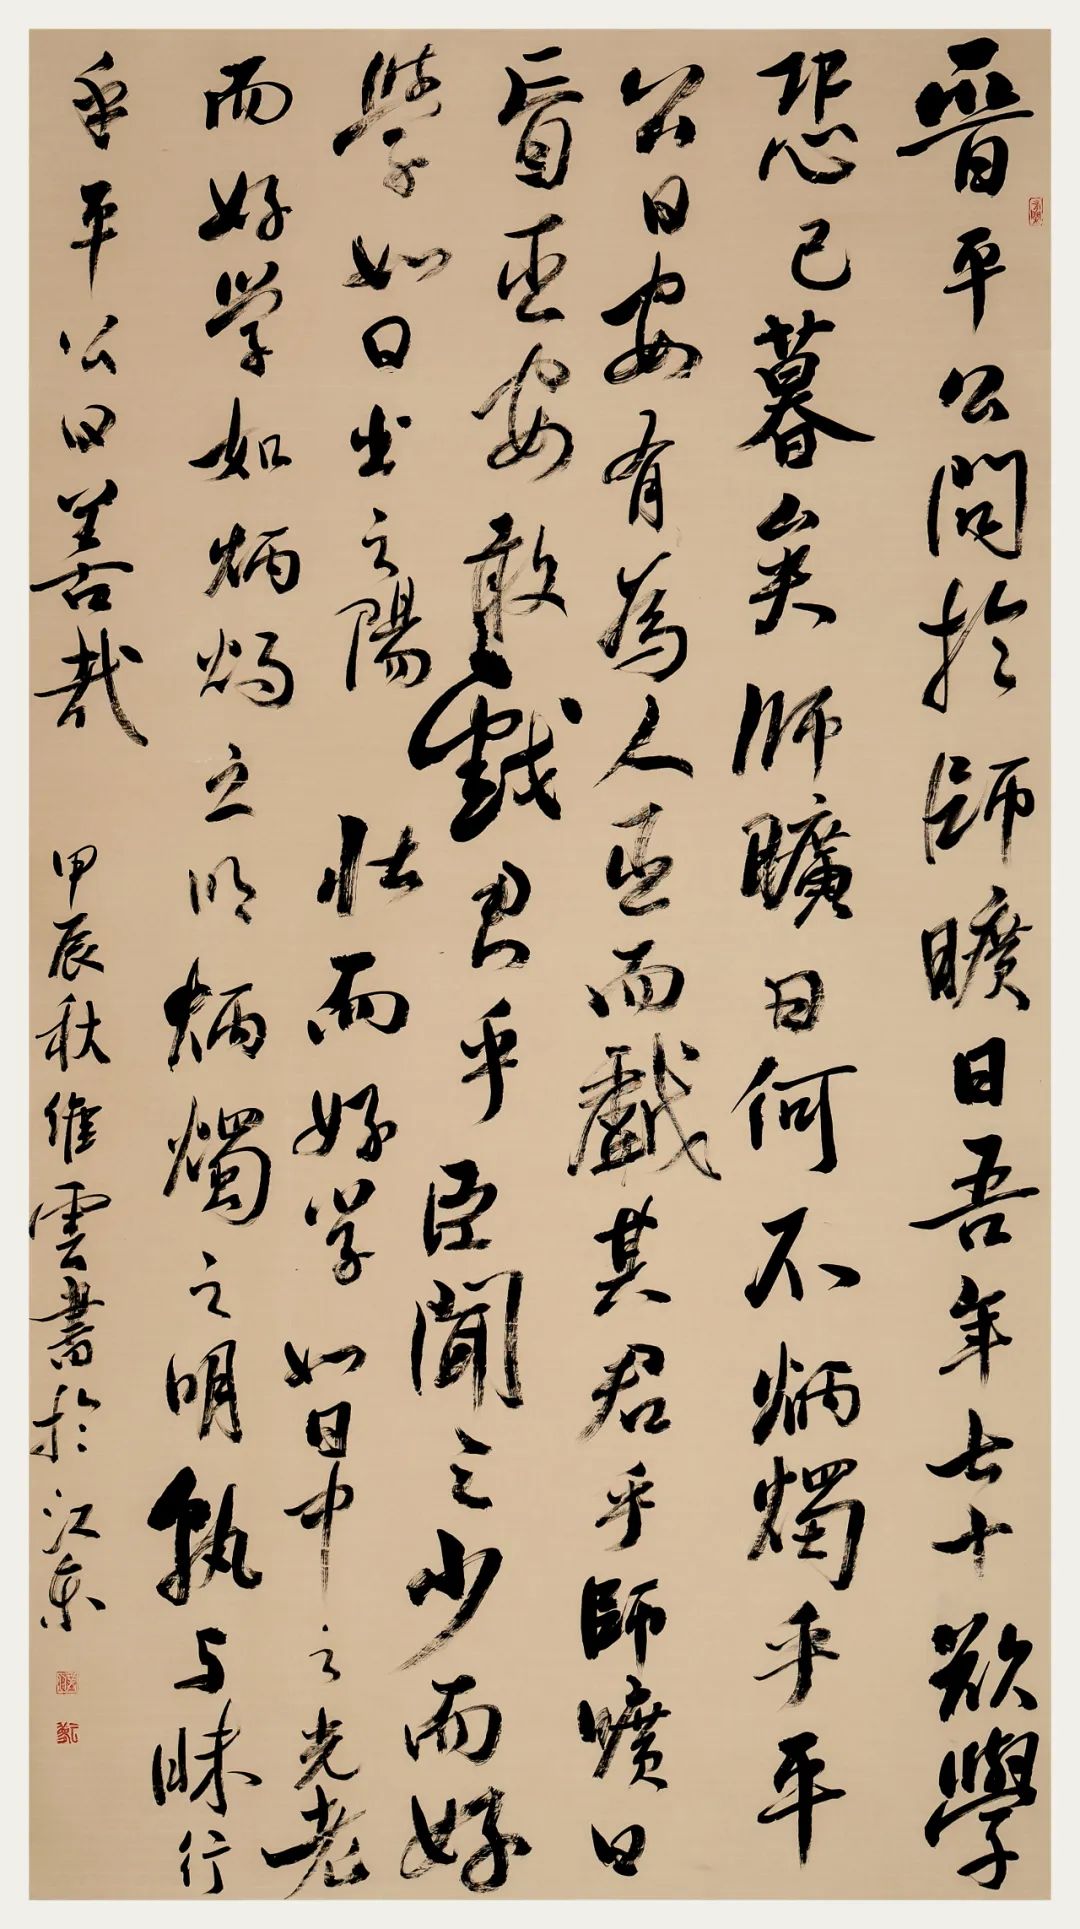 晉平公問於師曠曰吾年七十欲學
恐已暮矣師曠曰何不炳燭乎平
公曰安有為人臣而戲其君乎師曠曰
盲臣安敢戲君乎臣聞之少而好
學如日出之陽壯而好学如日中之光老
而好学如炳燭之明炳燭之明孰与昧行
乎平公曰善哉
甲辰秋維雲書於江東